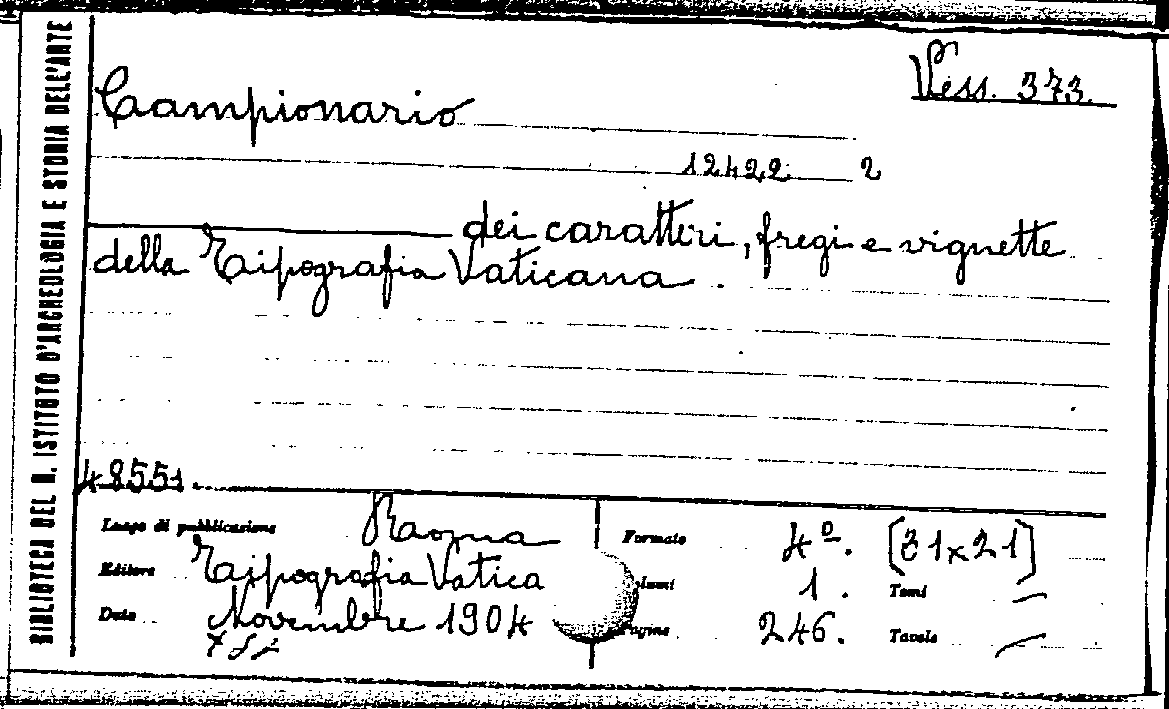 BIBLIOTECA DEL R. ISTITUTO D'ARCHEOLOGIA E STORIA DELL'ARTE
Vess. 373.
Campionario
12422 2
dei caratteri, fregi e vignette
della Tipografia Vaticana.
48551.
Luogo di pubblicazione Roma
Formato 4º. [31x21]
Editore Tipografia Vatica
lumi 1. Tomi —
Data Novembre 1904
Pagine 246. Tavole —